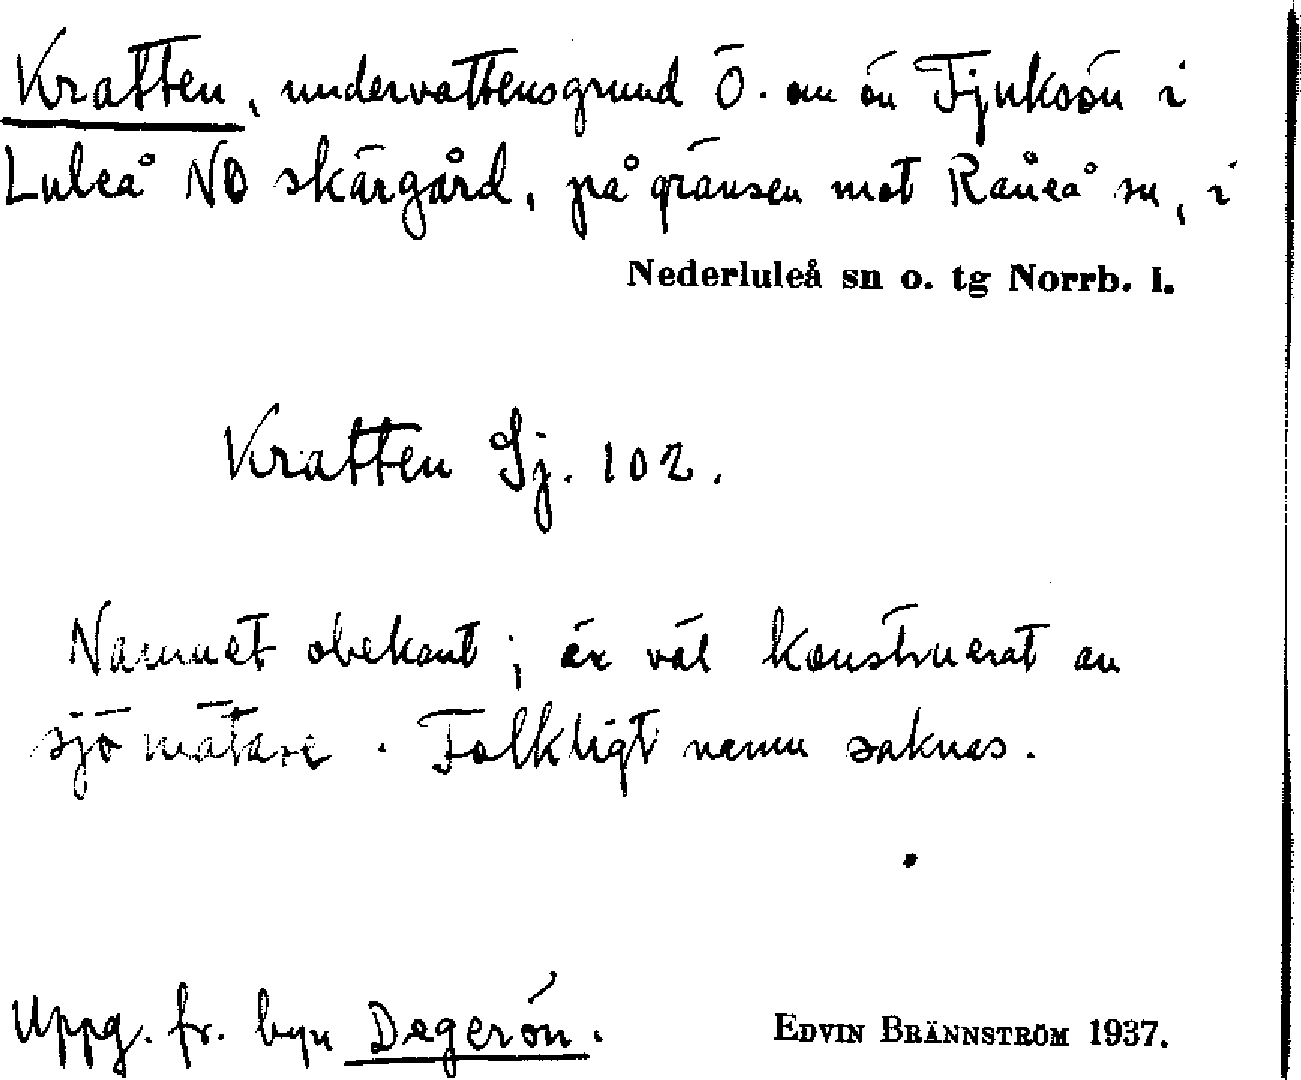 Kratten, undervattensgrund Ö. om ön Fjuksön i
Luleå NO skärgård, på gränsen mot Råneå sn, i
Nederluleå sn o. tg Norrb. l.
Kratten Sj. 102.
Namnet obekant; är väl konstruerat av
sjömätare. Folkligt namn saknas.
Uppg. fr. byn Degerön.
EDVIN BRÄNNSTRÖM 1937.